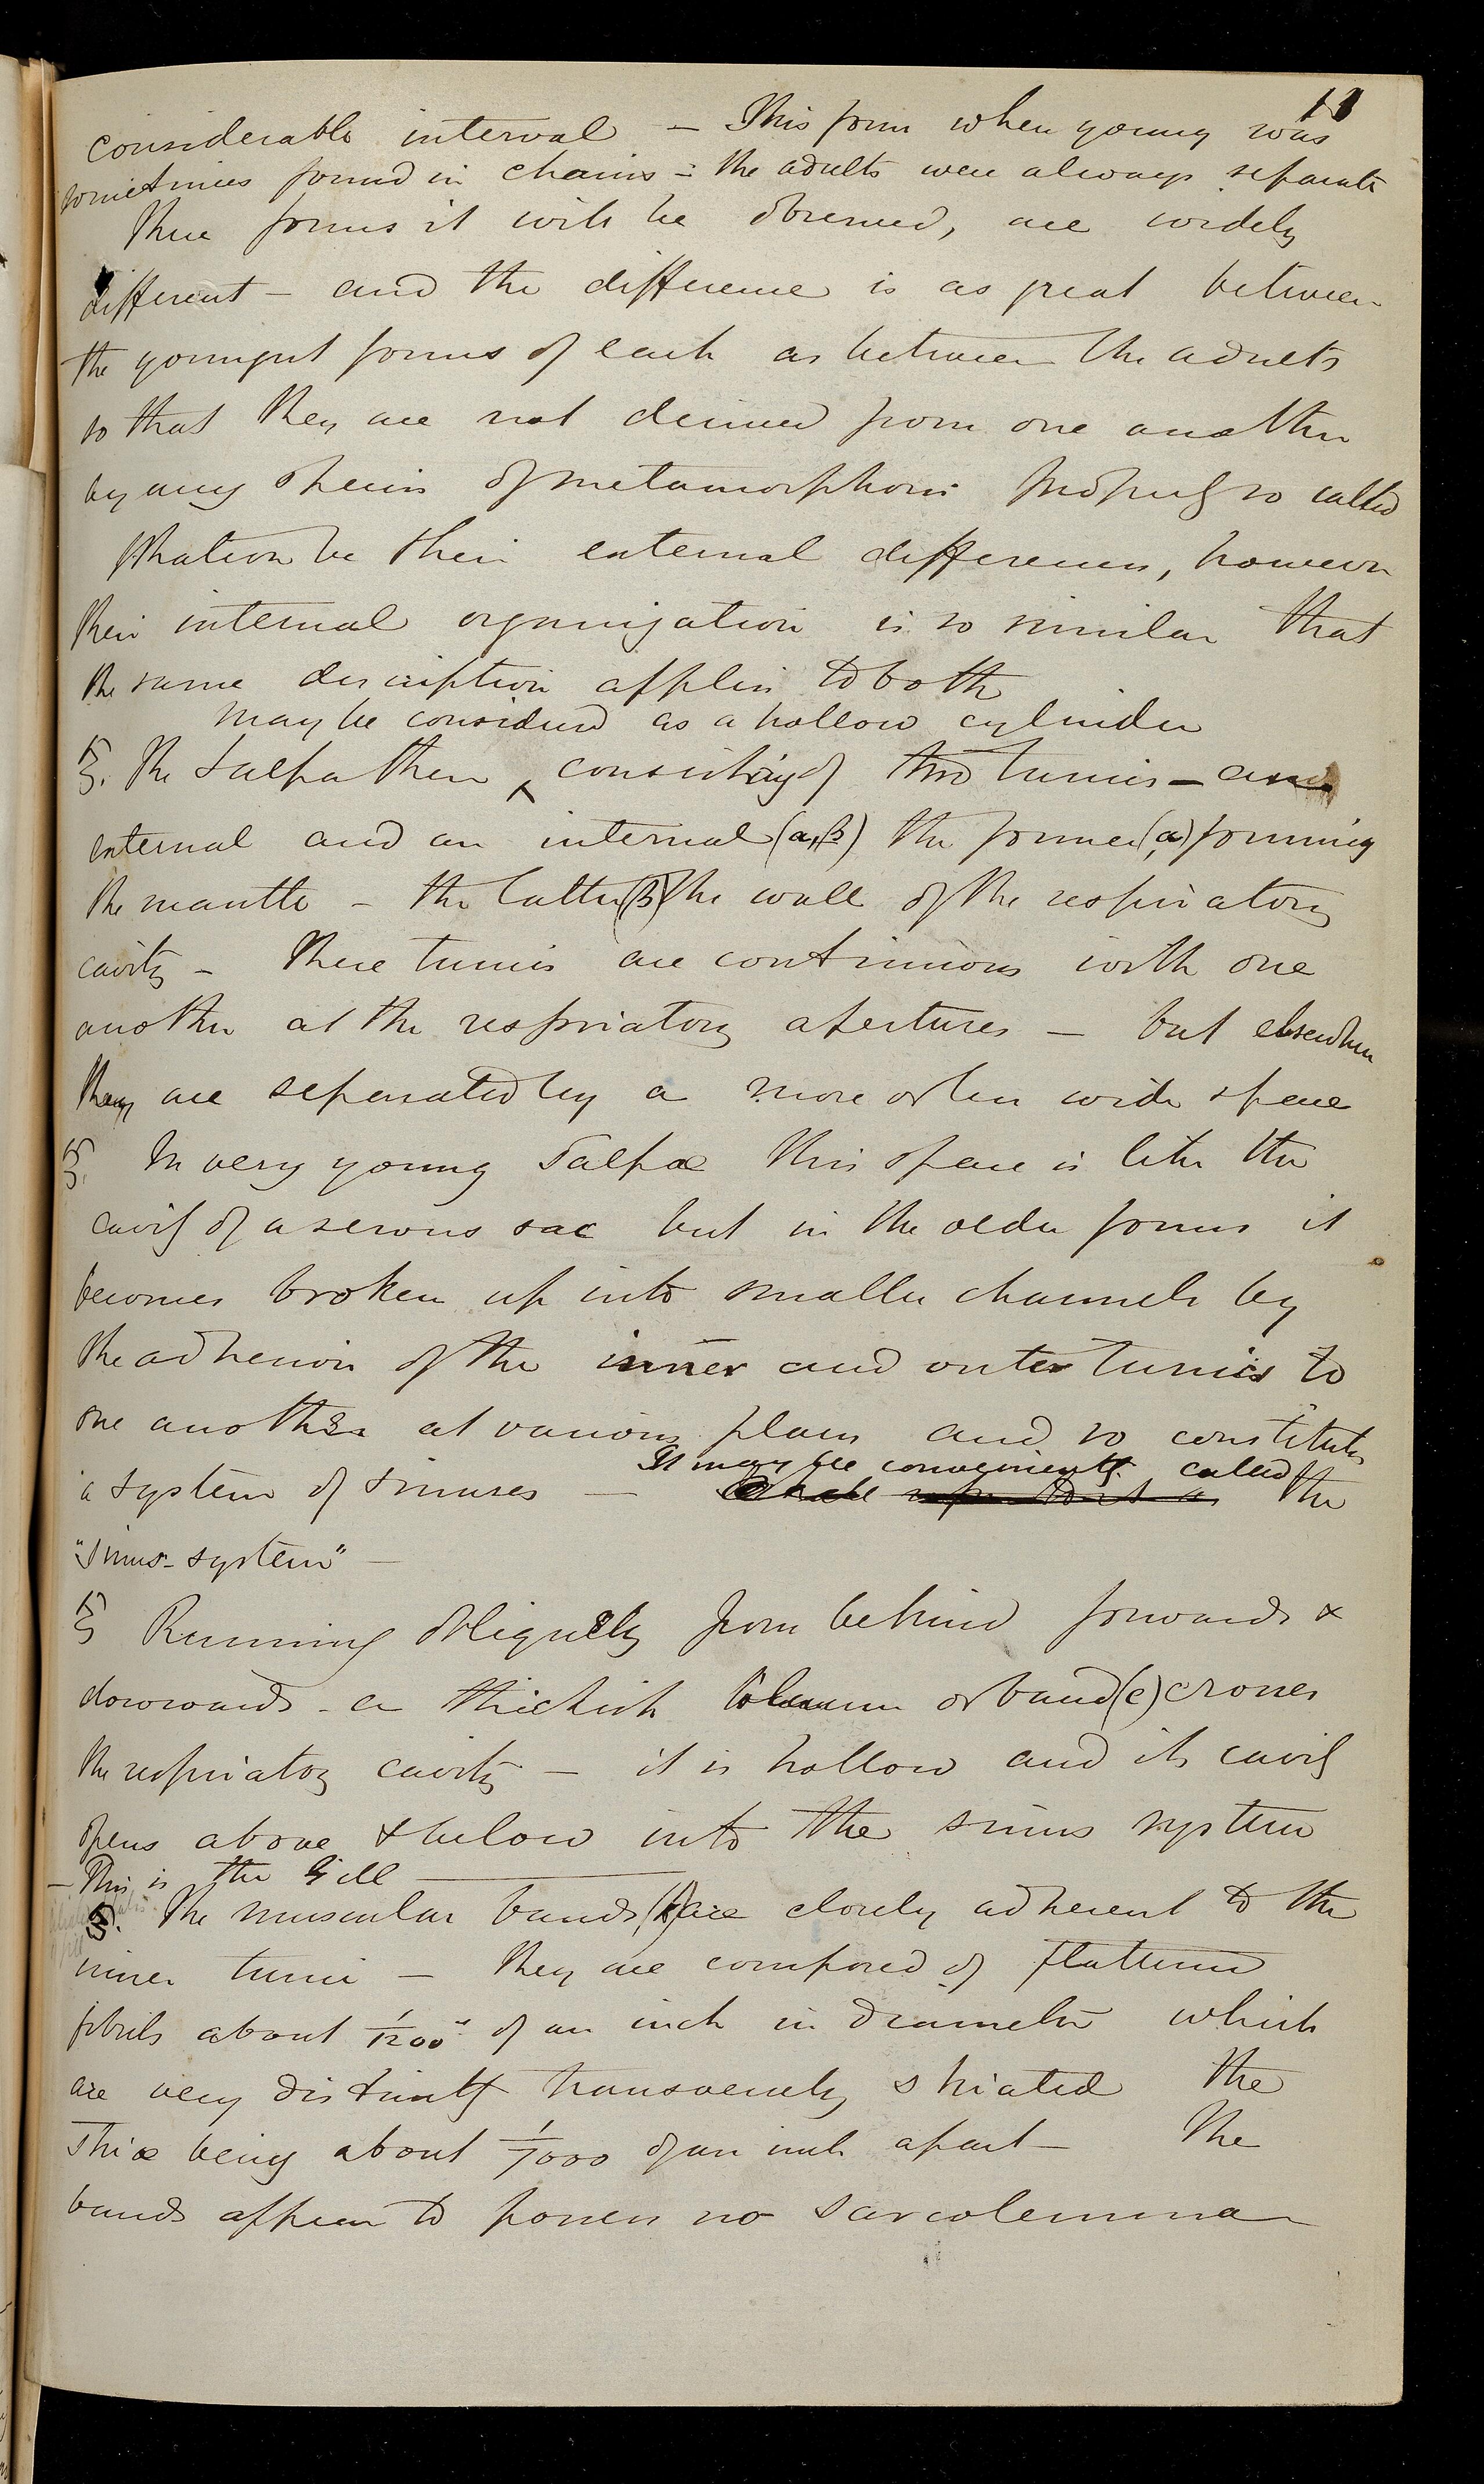 11
considerable interval – This form when young was
sometimes found in chains – the adults were always separate
These forms it will be observed, are widely
different – and the difference is as great between
the youngest forms of each as between the adults
so that they are not derived from one another
by any means of metamorphosis properly so called
Whatever be their external differences, however
their internal organization is so similar that
the same description applies to both
may be considered as a hollow cylinder
§. The Salpa then ^ consisting of two tunics – an
external and an internal (a,β) the former (a) forming
the mantle – the latter (β) the wall of the respiratory
cavity – These tunics are continuous with one
another at the respiratory apertures – but elsewhere
they are separated by a more or less wide space
§. In very young Salpæ this space is like the
cavity of a serous sac but in the older forms it
becomes broken up into smaller channels by
the adhesion of the inner and outer tunics to
one another at various places and so constitutes
a system of sinuses – It may be conveniently called
the
"sinus-system" –
§ Running obliquely from behind forwards &
downwards – a thickish column or band (e) crosses
the respiratory cavity – it is hollow and its cavity
opens above & below into the sinus system
– This is the Gill –
§. The muscular bands are closely adherent to the
inner tunic – They are composed of flattened
fibrils about 1/1200" of an inch in diameter which
are very distinctly transversely striated the
striæ being about 1/7000 of an inch apart – The
bands appear to possess no sarcolemma